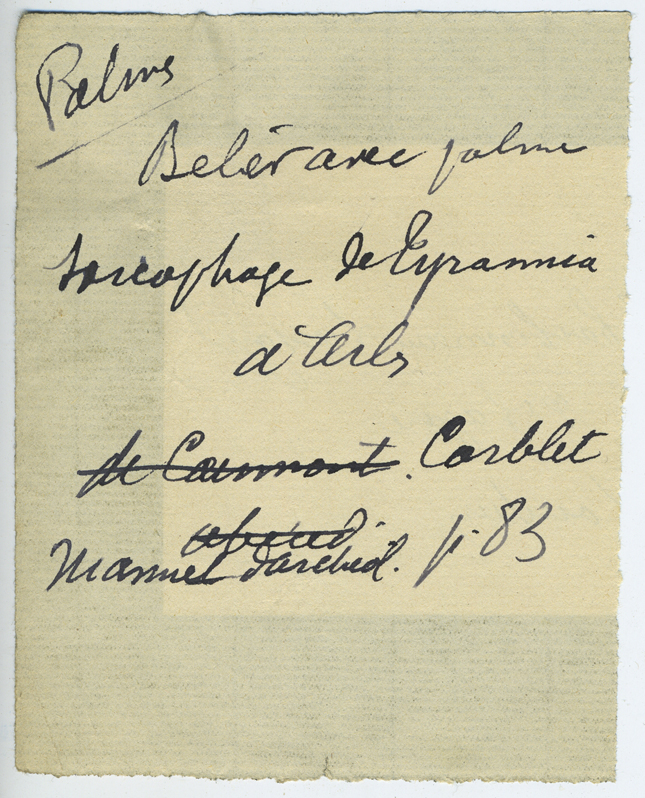 Palme
Belier avec palme
sarcophage de Tyrannia
à Arles
de Caumont. Corblet
apud
Manuel d'archéol. p. 83